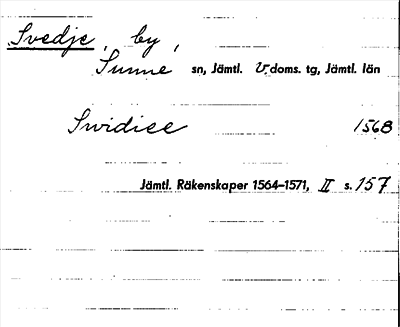 Svedje, by,
Sunne sn, Jämtl. v. doms. tg, Jämtl. län
Swidiee 1568
Jämtl. Räkenskaper 1564–1571, II s. 157